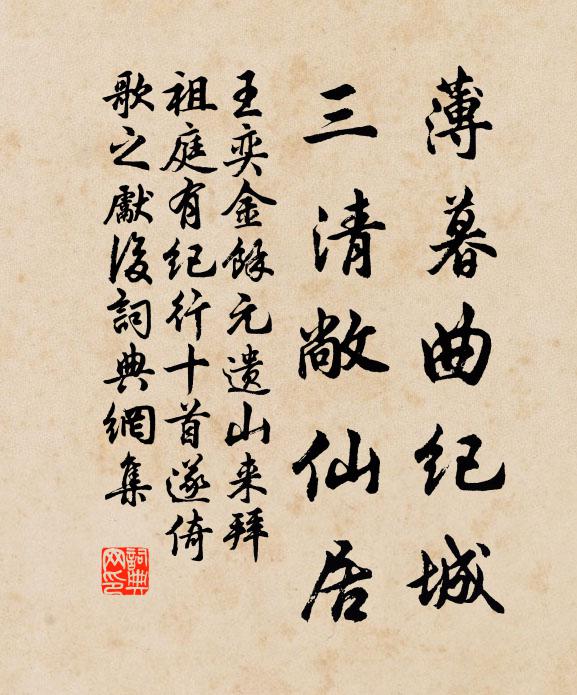 薄暮曲纪城
三清敞仙居
王奕金餘元遗山来拜
祖庭有纪行十首遂倚
歌之獻後詞典網集
詞典网印